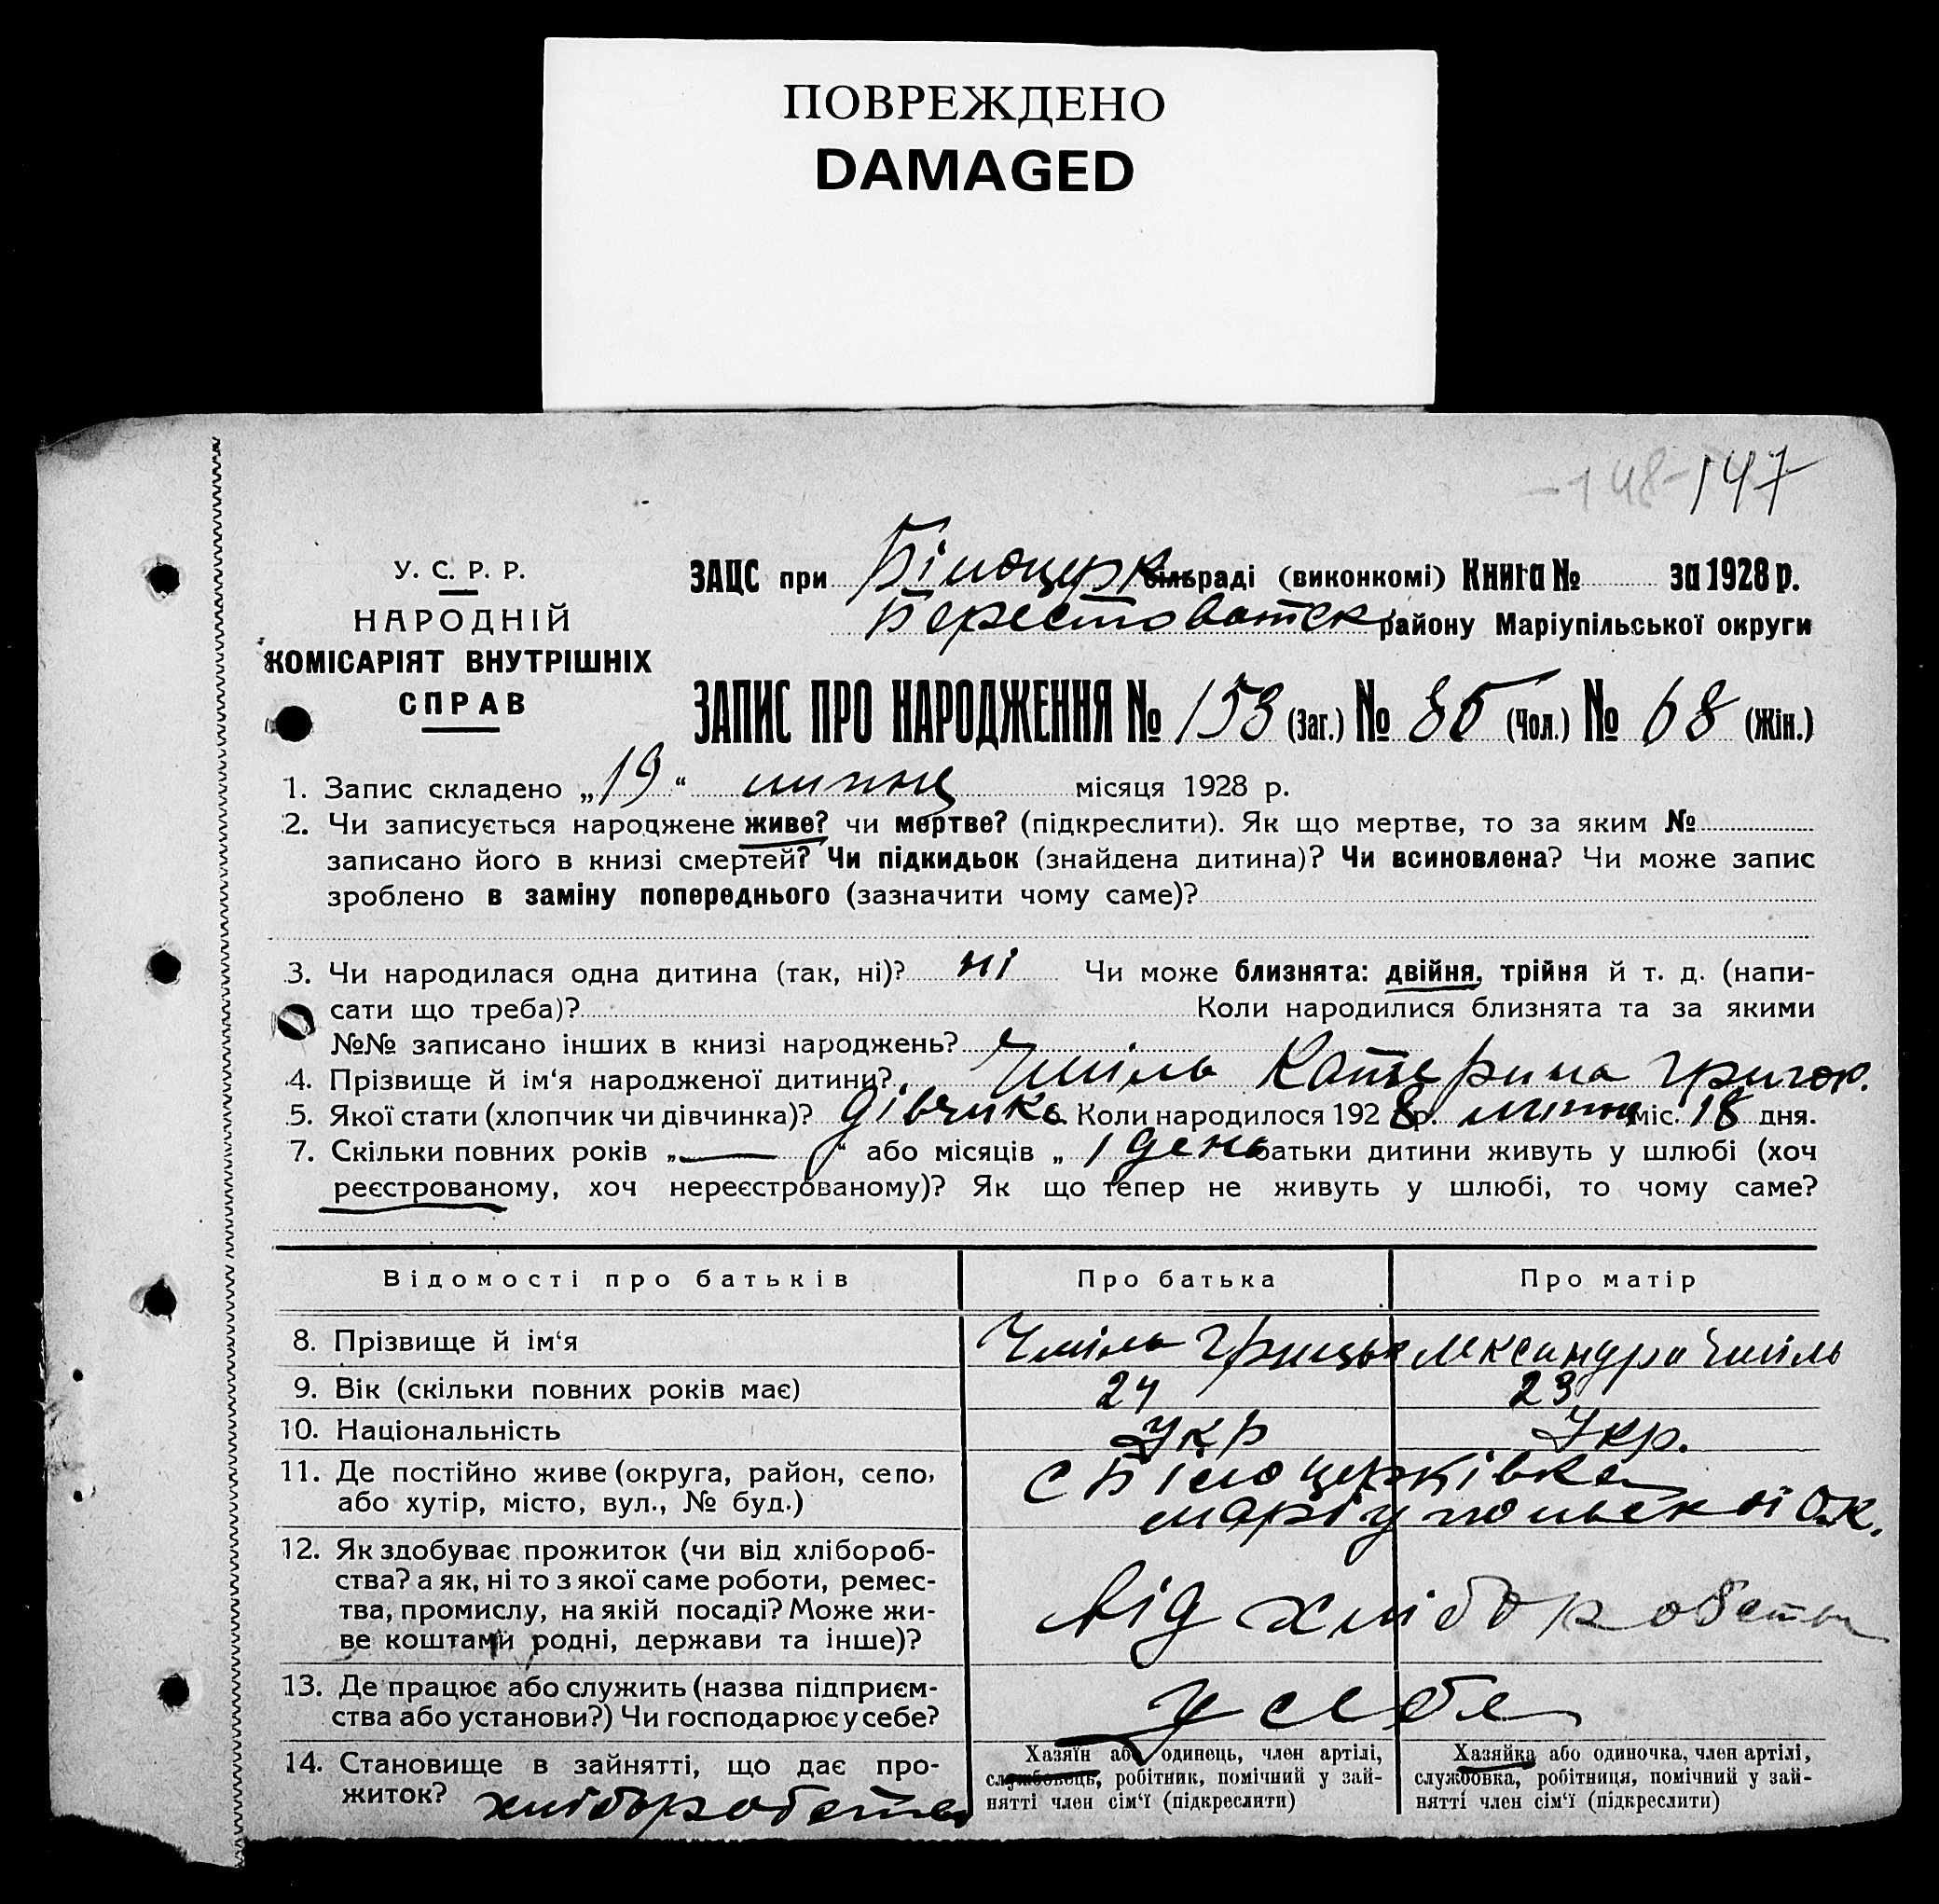 ПОВРЕЖДЕНО
DAMAGED
-148- 147
У. С. Р. Р.
НАРОДНІЙ
КОМІСАРІЯТ ВНУТРІШНІХ
СПРАВ
ЗАЦС при Білоцерк сільраді (виконкомі) Книга № за 1928 р.
Берестоватск району Маріупільської округи
ЗАПИС ПРО НАРОДЖЕННЯ № 153 (Заг.) № 85 (Чол.) № 68 (Жін.)
1. Запис складено „19“ липня місяця 1928 р.
2. Чи записується народжене живе? чи мертве? (підкреслити). Як що мертве, то за яким №
записано його в книзі смертей? Чи підкидьок (знайдена дитина)? Чи всиновлена? Чи може запис
зроблено в заміну попереднього (зазначити чому саме)?
3. Чи народилася одна дитина (так, ні)? ні Чи може близнята: двійня, трійня й т. д. (напи-
сати що треба)? Коли народилися близнята та за якими
№№ записано інших в книзі народжень?
4. Прізвище й ім‘я народженої дитини? Чміль Катерина Григор.
5. Якої стати (хлопчик чи дівчинка)? дівчинка Коли народилося 1928 р. липня міс. 18 дня.
7. Скільки повних років „—“ або місяців „1 день батьки дитини живуть у шлюбі (хоч
реєстрованому, хоч нереєстрованому)? Як що тепер не живуть у шлюбі, то чому саме?
Відомості про батьків Про батька Про матір
8. Прізвище й ім‘я Чміль Грицько Лександра Чміль
9. Вік (скільки повних років має) 24 23
10. Національність Укр Укр.
11. Де постійно живе (округа, район, село, с Білоцерківка
або хутір, місто, вул., № буд.) маріупольскої Ок.
12. Як здобуває прожиток (чи від хлібороб-
ства? а як, ні то з якої саме роботи, ремес-
тва, промислу, на якій посаді? Може жи- від хліборобства
ве коштами родні, держави та інше)?
13. Де працює або служить (назва підприєм-
ства або установи?) Чи господарює у себе? у себе
14. Становище в зайнятті, що дає про-
житок? хліборобства
Хазяїн або одинець, член артілі,
службовець, робітник, помічний у зай-
нятті член сім‘ї (підкреслити)
Хазяйка або одиночка, член артілі,
службовка, робітниця, помічний у зай-
нятті член сім‘ї (підкреслити)